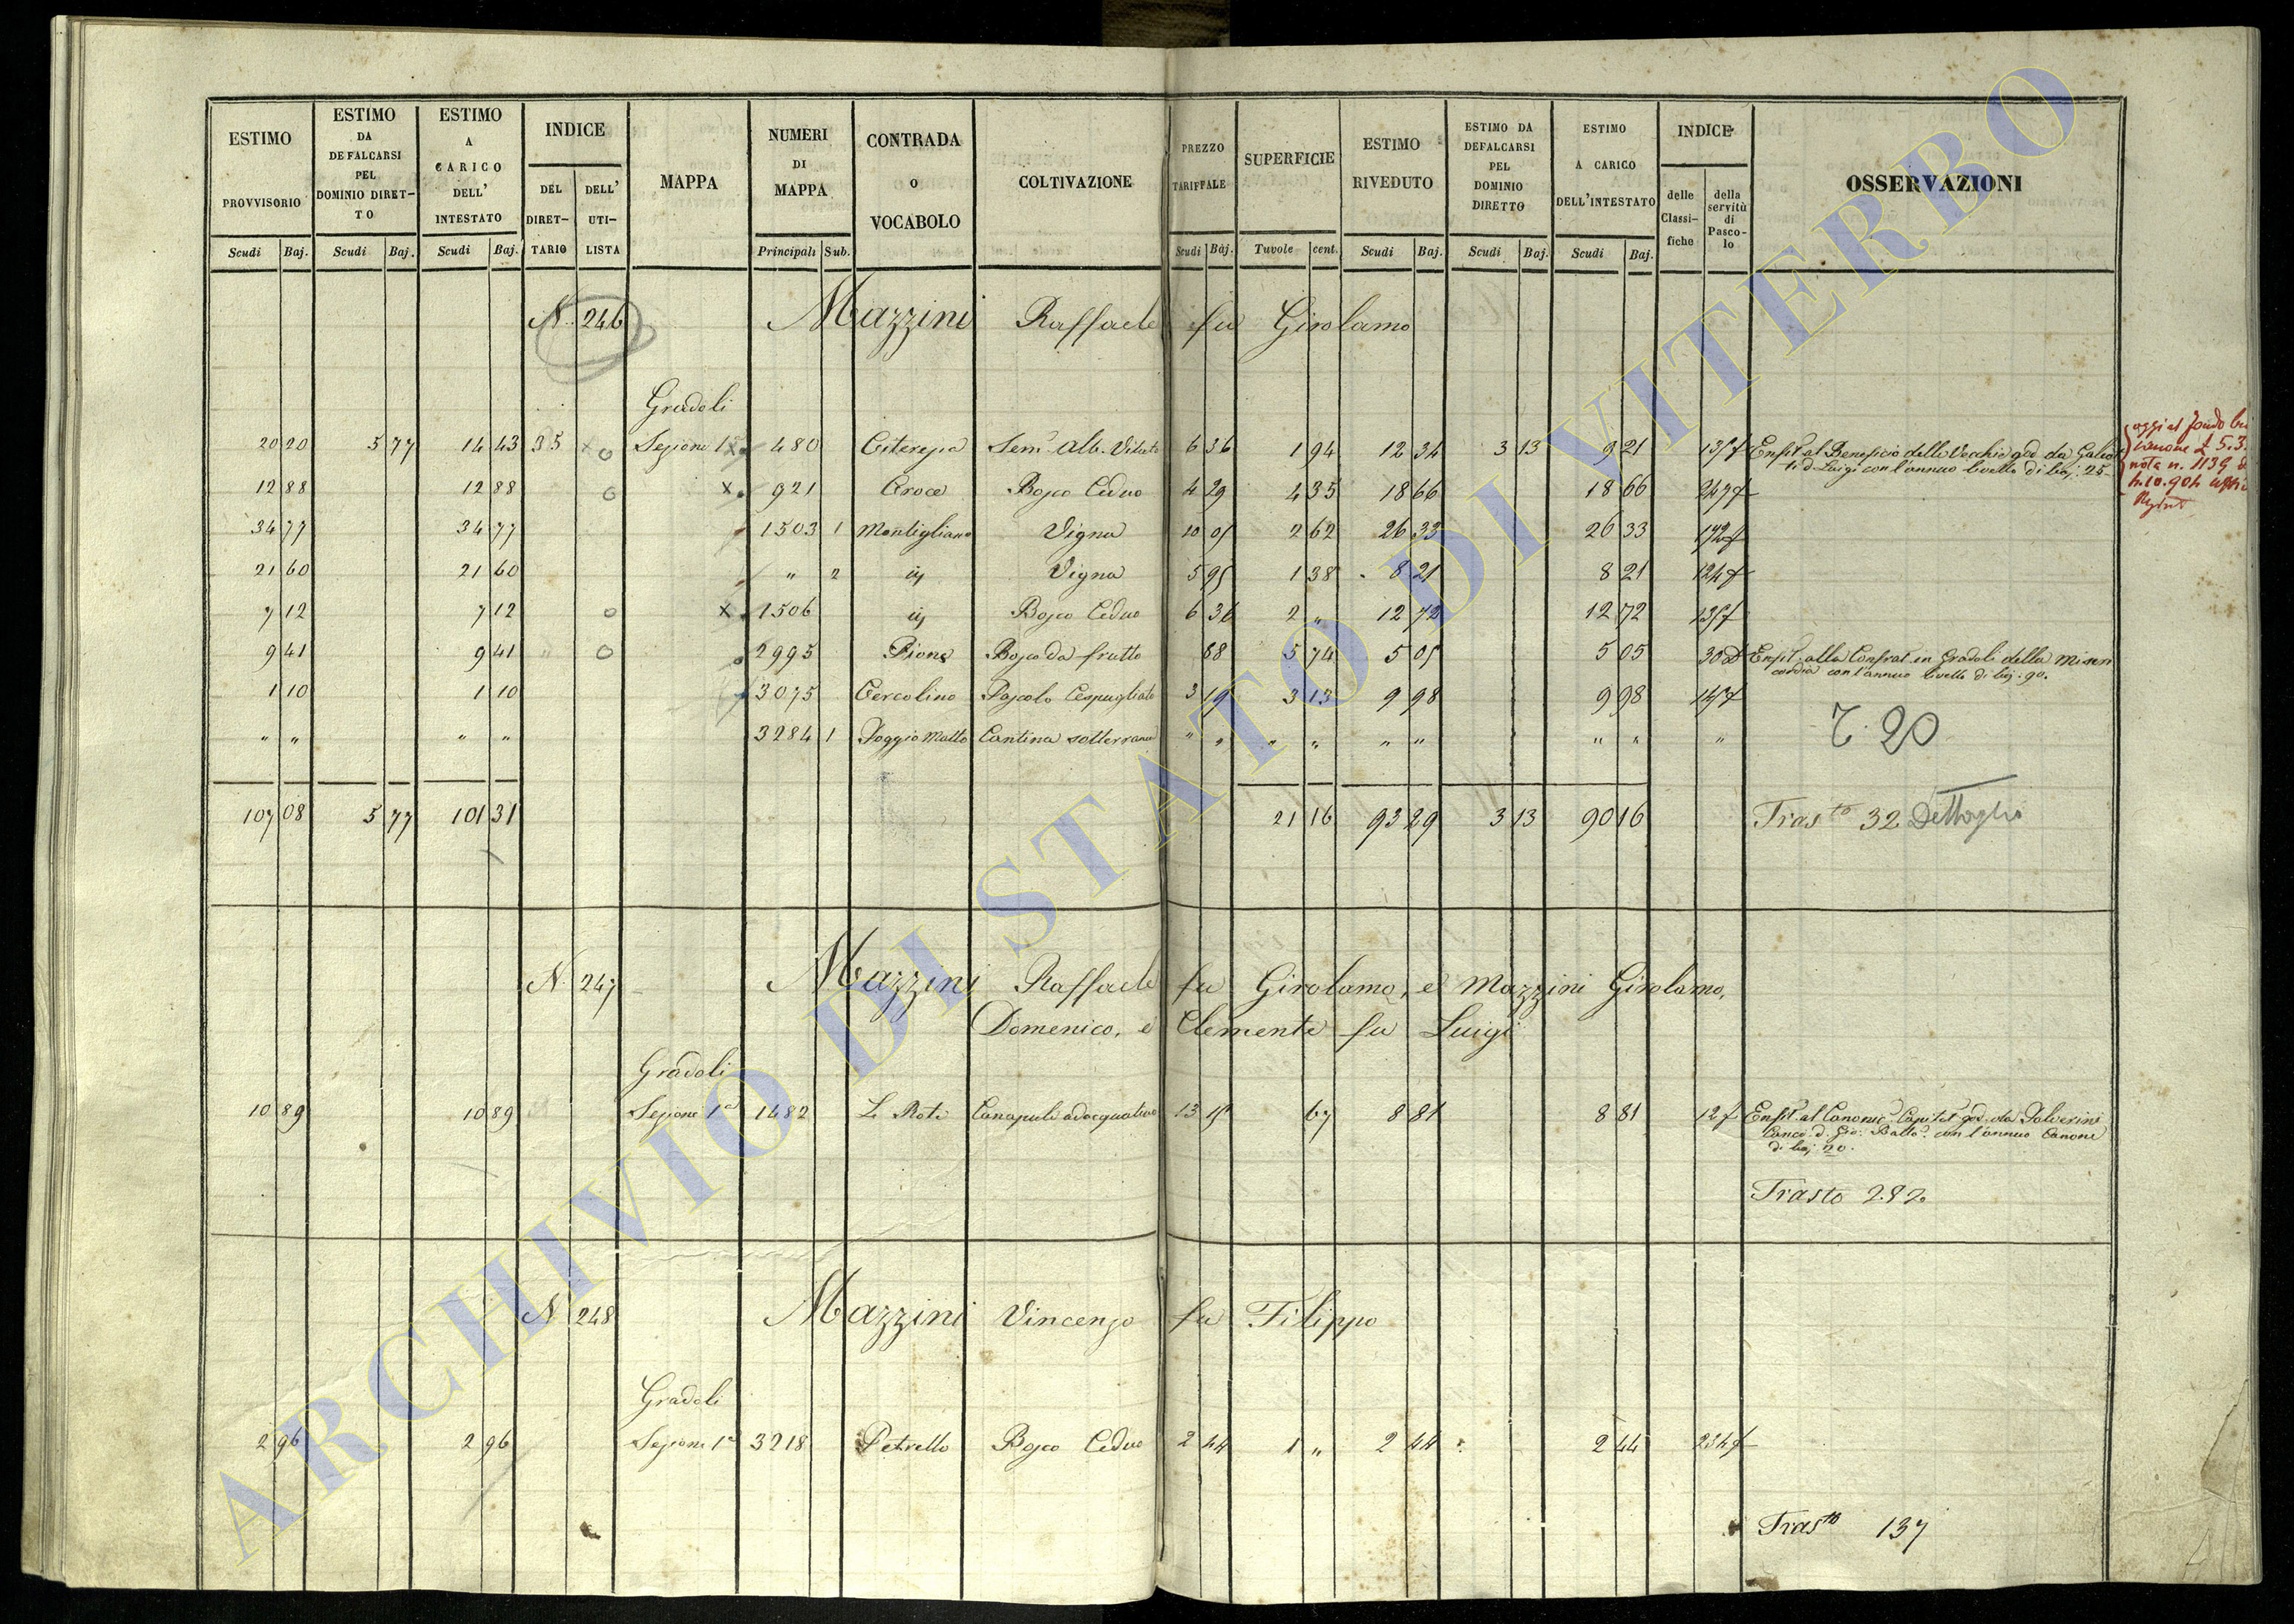 ESTIMO PROVVISORIO Scudi Baj. | ESTIMO DA DEFALCARSI PEL DOMINIO DIRETTO Scudi Baj. | ESTIMO A CARICO DELL' INTESTATO Scudi Baj. | INDICE DEL DIRETTARIO DELL' UTILISTA | MAPPA | NUMERI DI MAPPA Principali Sub. | CONTRADA o VOCABOLO | COLTIVAZIONE | PREZZO TARIFFALE Scudi Baj. | SUPERFICIE Tavole cent. | ESTIMO RIVEDUTO Scudi Baj. | ESTIMO DA DEFALCARSI PEL DOMINIO DIRETTO Scudi Baj. | ESTIMO A CARICO DELL'INTESTATO Scudi Baj. | INDICE delle Classifiche della servitù di Pascolo | OSSERVAZIONI
N. 246 Mazzini Raffaele fu Girolamo
Gradoli
20 20 5 77 14 43 35 x o Sezione 1a 480 Sem. Alb. Vitato 6 36 1 94 12 34 3 13 9 21 Enfit. al Beneficio della Vecchia god. da
Luigi con l'annuo livello di baj. 25
12 88 12 88 o x 921 Croce Bosco Ceduo 4 29 4 35 18 66 18 66
34 77 34 77 1503 1 Montigliano Vigna 10 05 2 62 26 33 26 33
21 60 21 60 " 2 Vigna 5 95 1 38 8 21 8 21
7 12 7 12 o x 1506 Bosco Ceduo 6 36 2 " 12 72 12 72
9 41 9 41 o 2995 Pione Bosco da frutto 88 5 74 5 05 5 05 Enfit. alla Confrat. in Gradoli della Miseri
cordia con l'annuo livello di baj. 90.
1 10 1 10 3075 Cercolino Pascolo Cespugliato 3 19 3 13 9 98 9 98
" " " " 3284 1 Poggio Matto Cantina sotterranea " " " " " " " " "
20
107 08 5 77 101 31 21 16 93 29 3 13 90 16 Trasto 32 Dettaglio
oggi al fondo
canone £ 5.3
nota n. 1139
N. 247 Mazzini Raffaele fu Girolamo, e Mazzini Girolamo,
Domenico, e Clemente fu Luigi
Gradoli
10 89 10 89 Sezione 1a 1482 Le Rote Canapule adacquativo 13 15 67 8 81 8 81 12 Enfit. al Canonic. god. da Polverini
con l'annuo Canone
di baj. 20.
Trasto 282
N. 248 Mazzini Vincenzo fu Filippo
Gradoli
2 96 2 96 Sezione 1a 3218 Petrello Bosco Ceduo 2 44 1 " 2 44 2 44
Trasto 137
ARCHIVIO DI STATO DI VITERBO